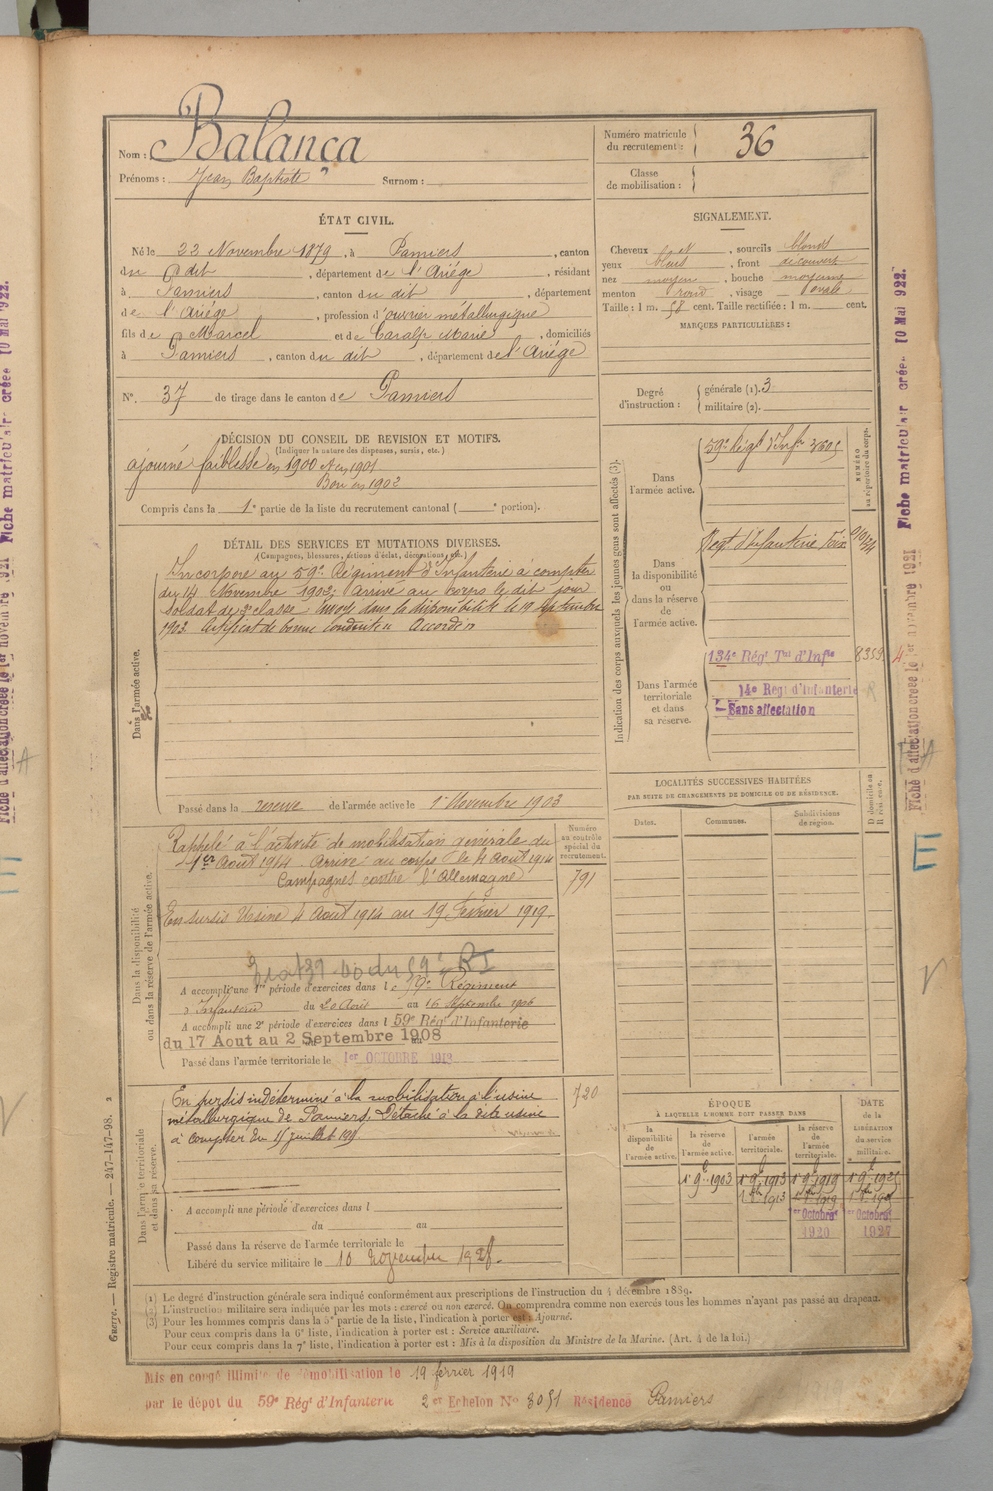 Nom : Balança
Prénoms : Jean Baptiste Surnom :
Numéro matricule du recrutement : 36
Classe de mobilisation :
ÉTAT CIVIL.
Né le 22 Novembre 1879, à Pamiers, canton
du dit, département de l'Ariège, résidant
à Pamiers, canton du dit, département
de l'Ariège, profession d'ouvrier métallurgique
fils de Marcel et de Caralp Marie, domiciliés
à Pamiers, canton du dit, département de l'Ariège
N°. 37 de tirage dans le canton de Pamiers
SIGNALEMENT.
Cheveux, sourcils blonds
yeux bleus, front découvert
nez moyen, bouche moyenne
menton rond, visage ovale
Taille : 1 m. 58 cent. Taille rectifiée : 1 m. cent.
MARQUES PARTICULIÈRES :
Degré d'instruction : générale (1). 3
militaire (2).
DÉCISION DU CONSEIL DE REVISION ET MOTIFS.
(Indiquer la nature des dispenses, sursis, etc.)
ajourné faiblesse en 1900 et en 1901
Bon en 1902
Compris dans la 1e partie de la liste du recrutement cantonal ( e portion).
DÉTAIL DES SERVICES ET MUTATIONS DIVERSES.
(Campagnes, blessures, actions d'éclat, décorations, etc.)
Dans l'armée active.
Incorporé au 59e Régiment d'Infanterie a compter
du 14 Novembre 1902; arrivé au corps le dit jour
Soldat de 2e classe Envoyé dans la disponibilité le 19 septembre
1903 Certificat de bonne conduite " Accordé "
Passé dans la réserve de l'armée active le 1er Novembre 1903
Indication des corps auxquels les jeunes gens sont affectés (3).
NUMÉRO au répertoire du corps.
Dans l'armée active.
59e Régt d'Infie 3605
Dans la disponibilité ou dans la réserve de l'armée active.
Régt d'Infanterie Foix
Dans l'armée territoriale et dans sa réserve.
134e Régt Tal d'Infie 8359
14e Régt d'Infanterie
Sans affectation
LOCALITÉS SUCCESSIVES HABITÉES
PAR SUITE DE CHANGEMENTS DE DOMICILE OU DE RÉSIDENCE.
Dates. Communes. Subdivisions de région. D domicile ou R résidence.
Dans la disponibilité ou dans la réserve de l'armée active.
Numéro au contrôle spécial du recrutement.
791
Rappelé à l'activité de mobilisation générale du
1er Août 1914. Arrivé au corps le 4 août 1914
Campagnes contre l'Allemagne
En sursis Usine 4 Août 1914 au 19 Février 1919.
A accompli une 1re période d'exercices dans le 59e Régiment
d'Infanterie du 20 Août au 16 Septembre 1906
A accompli une 2e période d'exercices dans l 59e Régt d'Infanterie
du 17 Aout au 2 Septembre 1908
Passé dans l'armée territoriale le 1er OCTOBRE 1913
Dans l'armée territoriale et dans sa réserve.
720
En sursis indéterminé à la mobilisation à l'usine
métallurgique de Pamiers. Détaché à la dite usine
à compter du 1er Juillet 191
A accompli une période d'exercices dans l
du au
Passé dans la réserve de l'armée territoriale le
Libéré du service militaire le 10 novembre 1928.
ÉPOQUE
À LAQUELLE L'HOMME DOIT PASSER DANS
DATE de la LIBÉRATION du service militaire.
la disponibilité de l'armée active. la réserve de l'armée active. l'armée territoriale. la réserve de l'armée territoriale.
1er 9bre 1903 1er 9bre 1913 1er 9bre 1919
1er Octobre 1920
1er Octobre 1927
(1) Le degré d'instruction générale sera indiqué conformément aux prescriptions de l'instruction du 4 décembre 1889.
(2) L'instruction militaire sera indiquée par les mots : exercé ou non exercé. On comprendra comme non exercés tous les hommes n'ayant pas passé au drapeau.
(3) Pour les hommes compris dans la 5e partie de la liste, l'indication à porter est : Ajourné.
Pour ceux compris dans la 6e liste, l'indication à porter est : Service auxiliaire.
Pour ceux compris dans la 7e liste, l'indication à porter est : Mis à la disposition du Ministre de la Marine. (Art. 4 de la loi.)
Mis en congé illimité de démobilisation le 19 février 1919
par le dépôt du 59e Régt d'Infanterie 2er Echelon No 3051 Résidence Pamiers
Guerre. — Registre matricule. — 247-147-98. 2
Fiche matriculaire créée 10 Mai 1922.
Fiche d'affectation créée le 1er novembre 1921